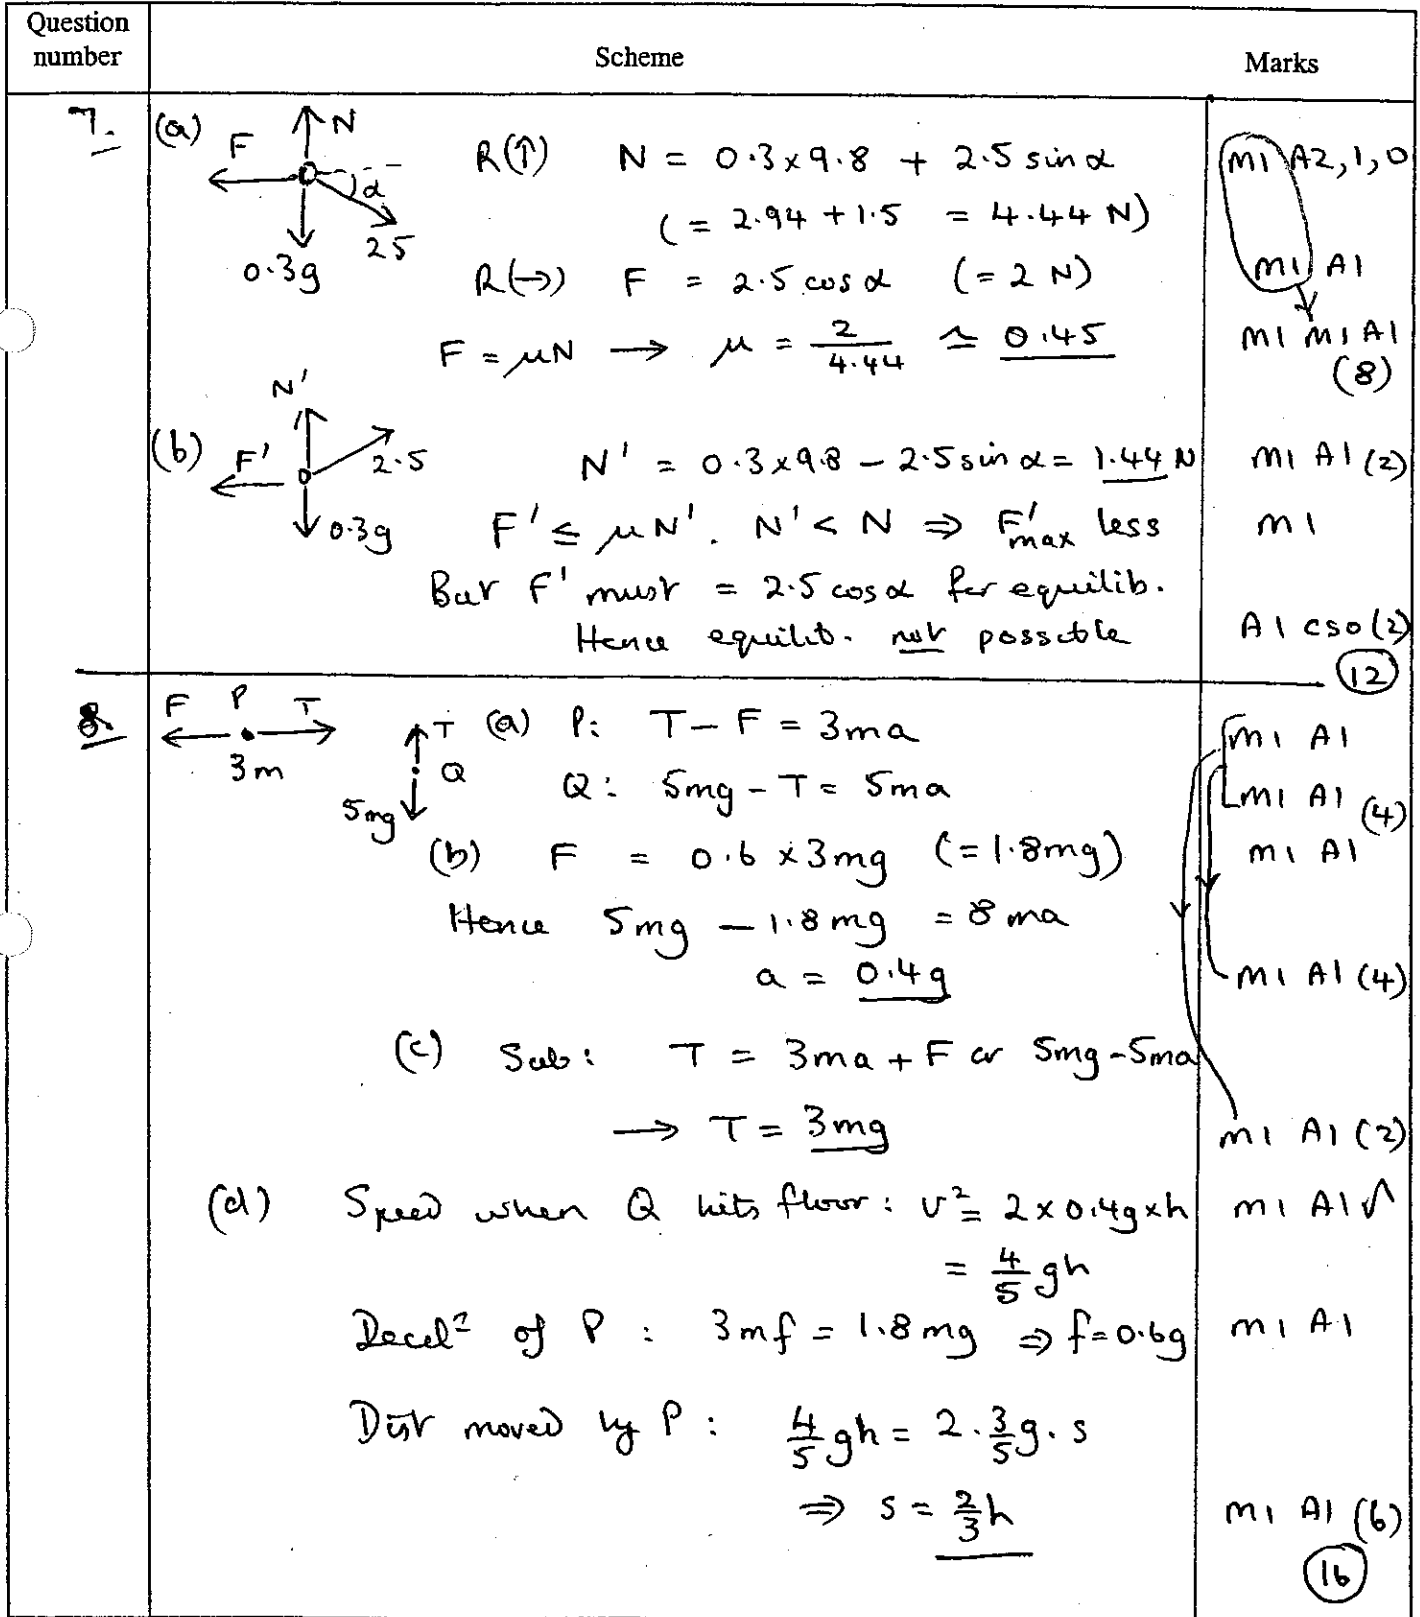 Question number Scheme Marks
7. (a) F N α 2.5 0.3g
R(↑) N = 0.3×9.8 + 2.5 sin α M1 A2,1,0
(= 2.94 + 1.5 = 4.44 N)
R(→) F = 2.5 cos α (= 2 N) M1 A1
F = μN → μ = 2/4.44 ≃ 0.45 M1 M1 A1
(8)
(b) N' F' 2.5 0.3g
N' = 0.3×9.8 − 2.5 sin α = 1.44 N M1 A1 (2)
F' ≤ μN'. N' < N ⇒ F'max less M1
But F' must = 2.5 cos α for equilib.
Hence equilib. not possible A1 cso (2)
(12)
8. F P T 3m T Q 5mg
(a) P: T − F = 3ma M1 A1
Q: 5mg − T = 5ma M1 A1 (4)
(b) F = 0.6 × 3mg (= 1.8mg) M1 A1
Hence 5mg − 1.8mg = 8ma
a = 0.4g M1 A1 (4)
(c) Sub: T = 3ma + F or 5mg − 5ma
→ T = 3mg M1 A1 (2)
(d) Speed when Q hits floor: v² = 2 × 0.4g × h M1 A1 √
= 4/5 gh
Decelⁿ of P : 3mf = 1.8mg ⇒ f = 0.6g M1 A1
Dist moved by P : 4/5 gh = 2 · 3/5 g · s
⇒ s = 2/3 h M1 A1 (6)
(16)